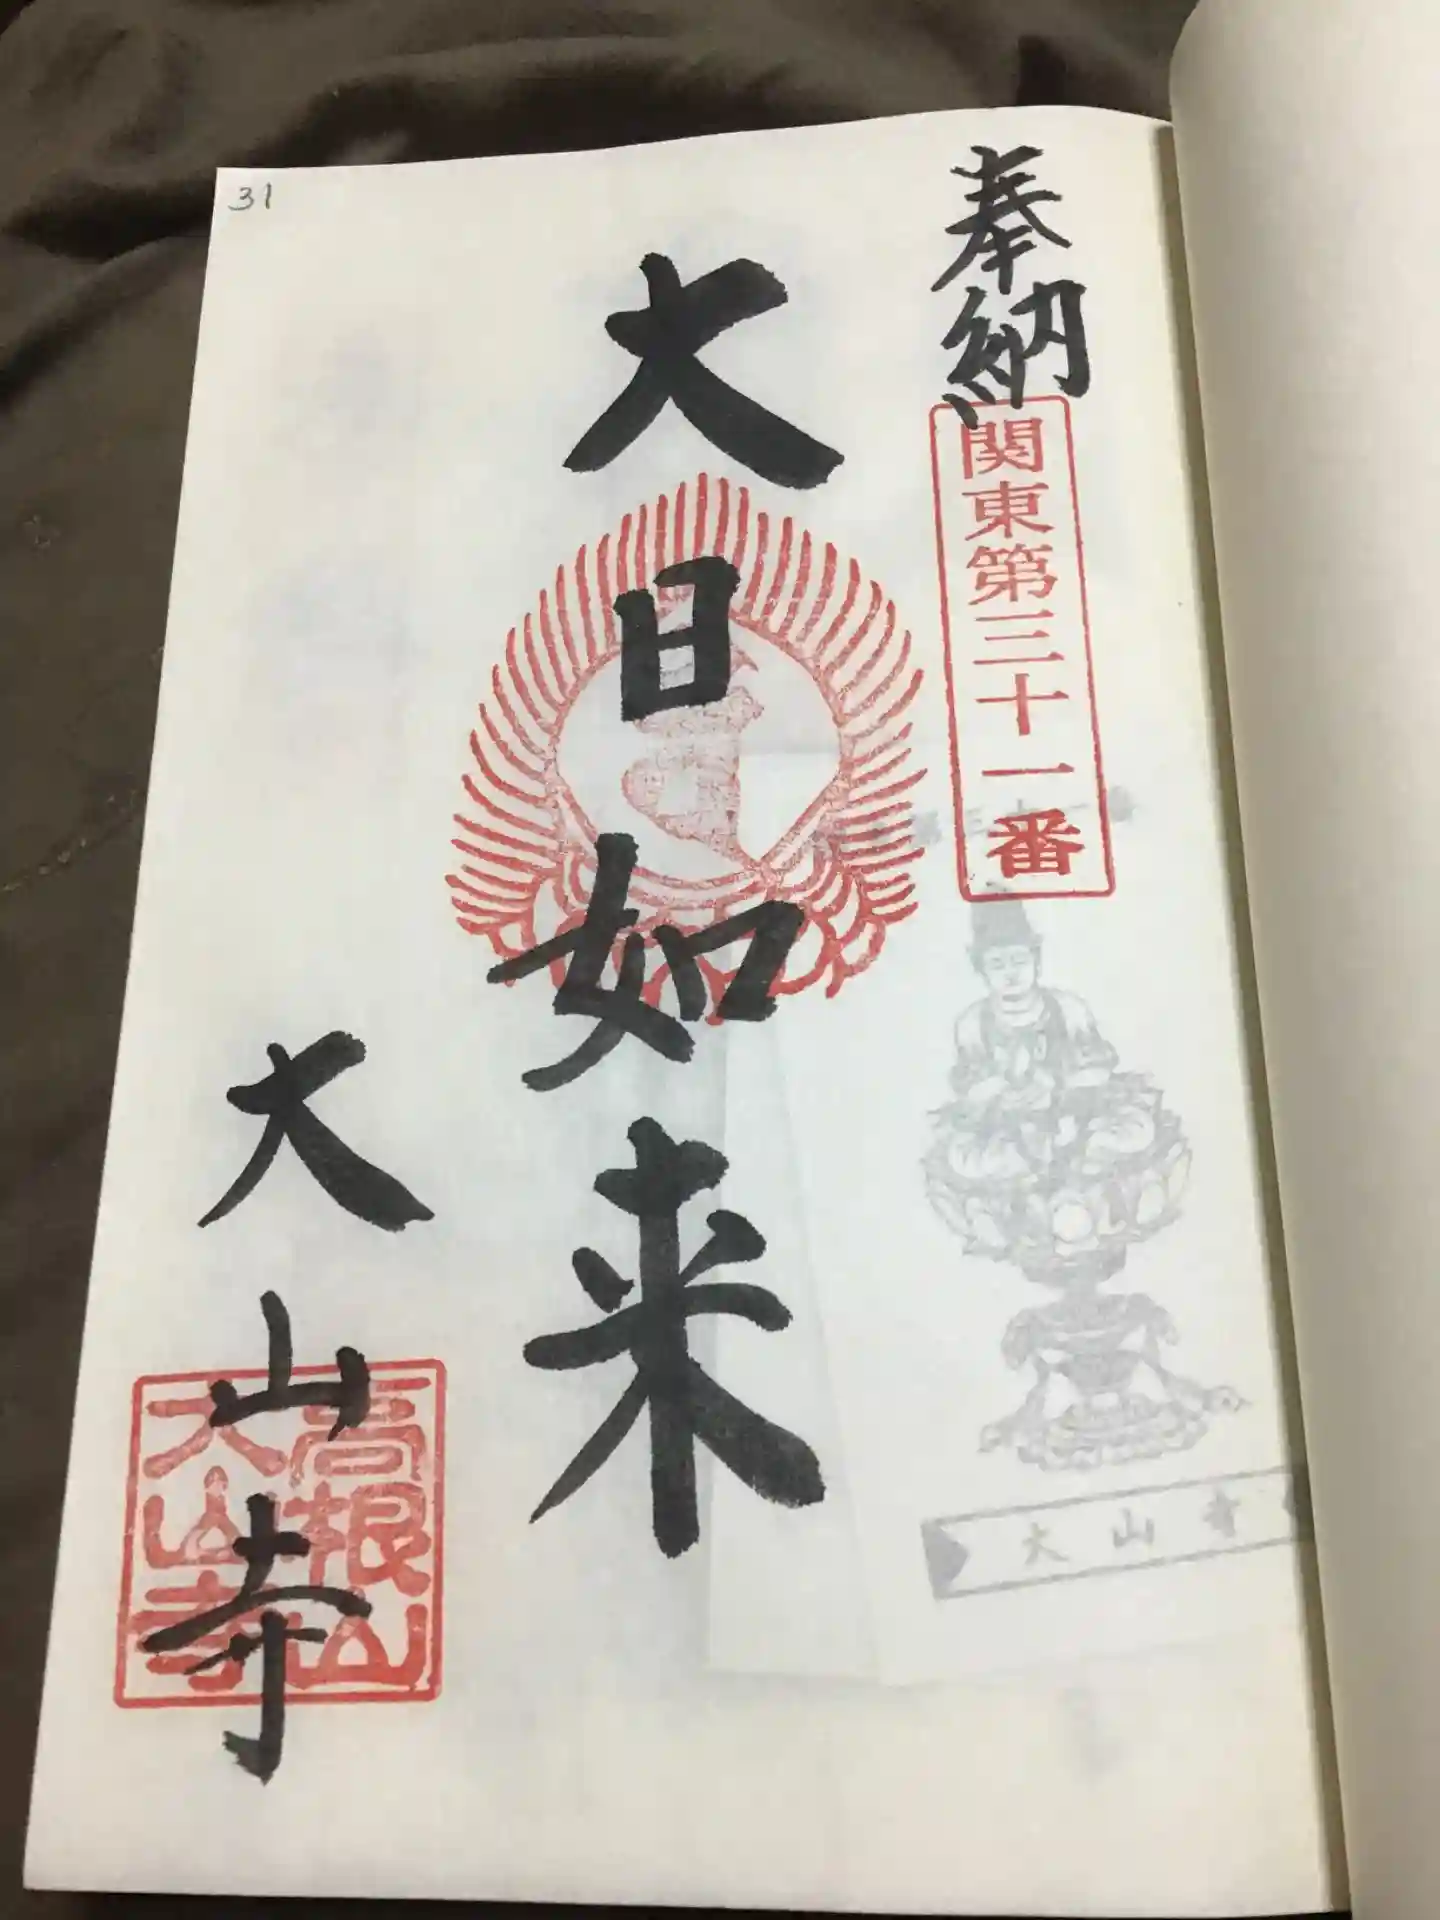 31
奉納
関東第三十一番
大日如来
大山寺
高根山
大山寺
大山寺